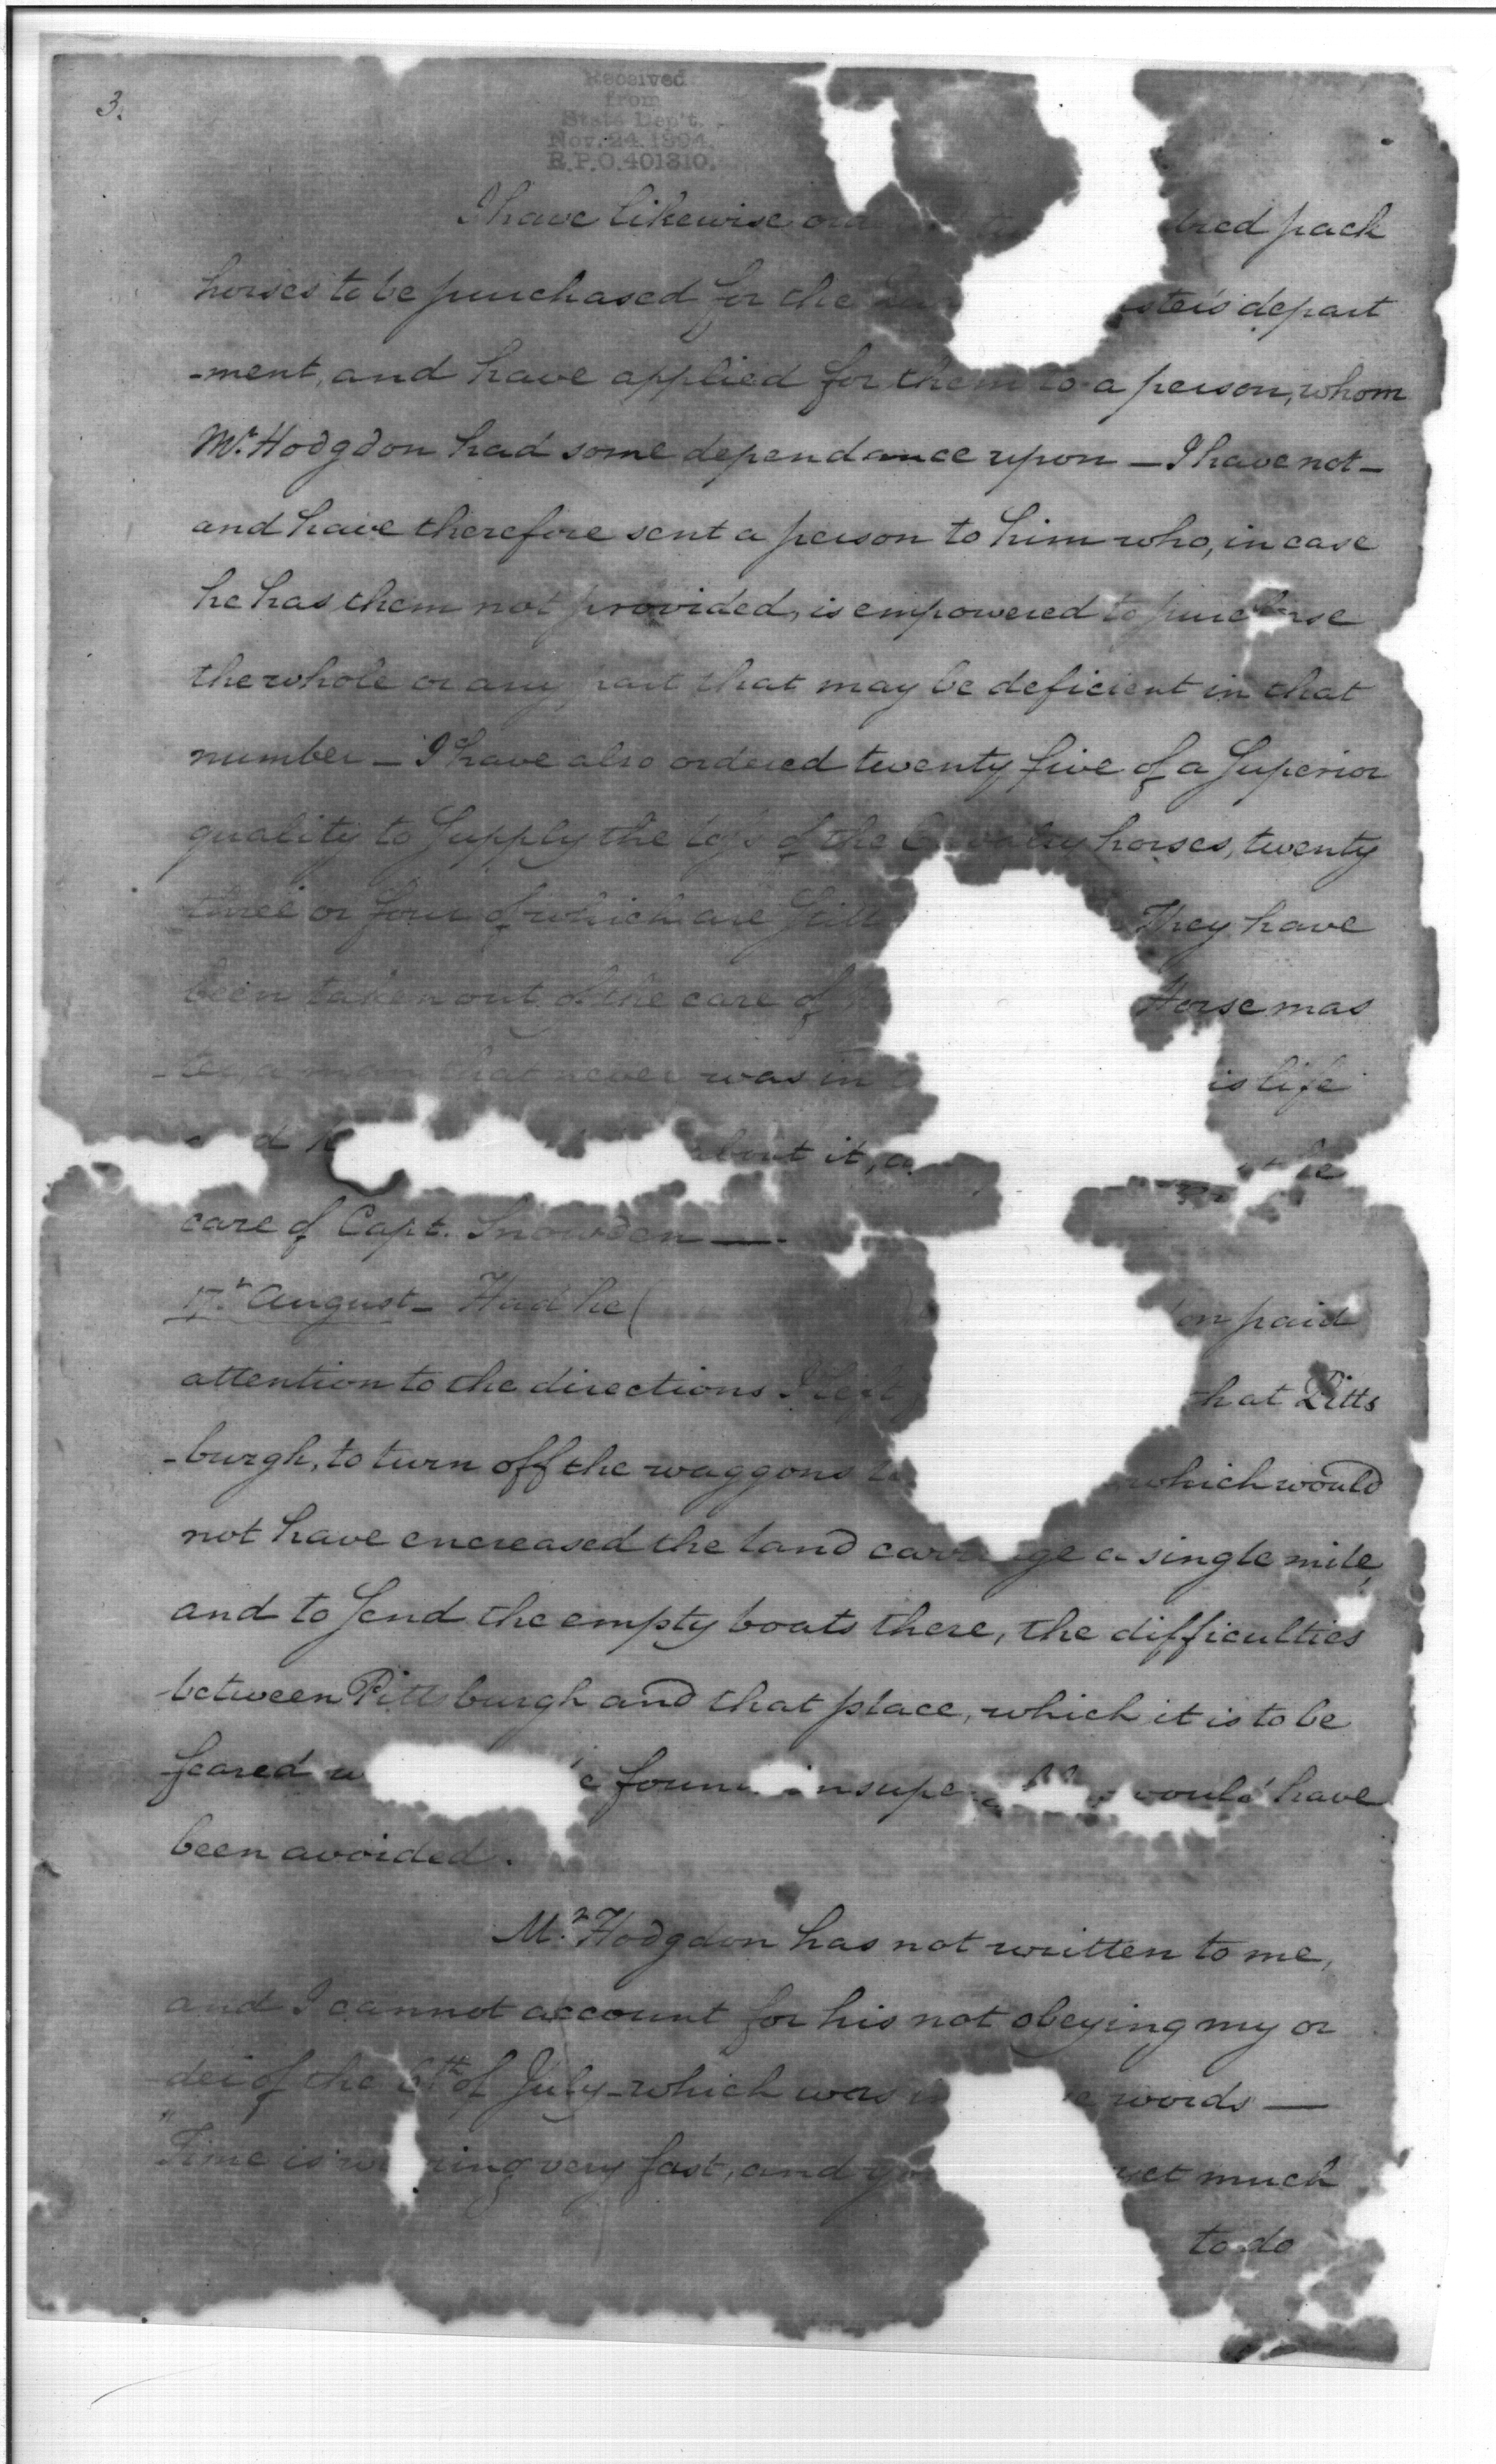 3.
Received
from
State Dep't.
Nov. 24. 1894.
R.P.O. 401310.
I have likewise pack
horses to be purchased for the depart
-ment, and have applied for them to a person, whom
Mr. Hodgdon had some dependance upon — I have not —
and have therefore sent a person to him who, in case
he has them not provided, is empowered to purchase
the whole or any part that may be deficient in that
number — I have also ordered twenty five of a Superior
quality to Supply the loss of the Cavalry horses, twenty
three or four of which are They have
been taken out of the care of Horse mas
-ter, a man that never was in life
about it,
care of Capt. Snowden —
17.th August — Had he ( paid
attention to the directions I that Pitts
-burgh, to turn off the waggons which would
not have encreased the land carriage a single mile,
and to Send the empty boats there, the difficulties
between Pittsburgh and that place, which it is to be
feared found insuperable would have
been avoided.
Mr. Hodgdon has not written to me,
and I cannot account for his not obeying my or
der of the 6th of July — which was words —
"Time is very fast, and yet much
to do